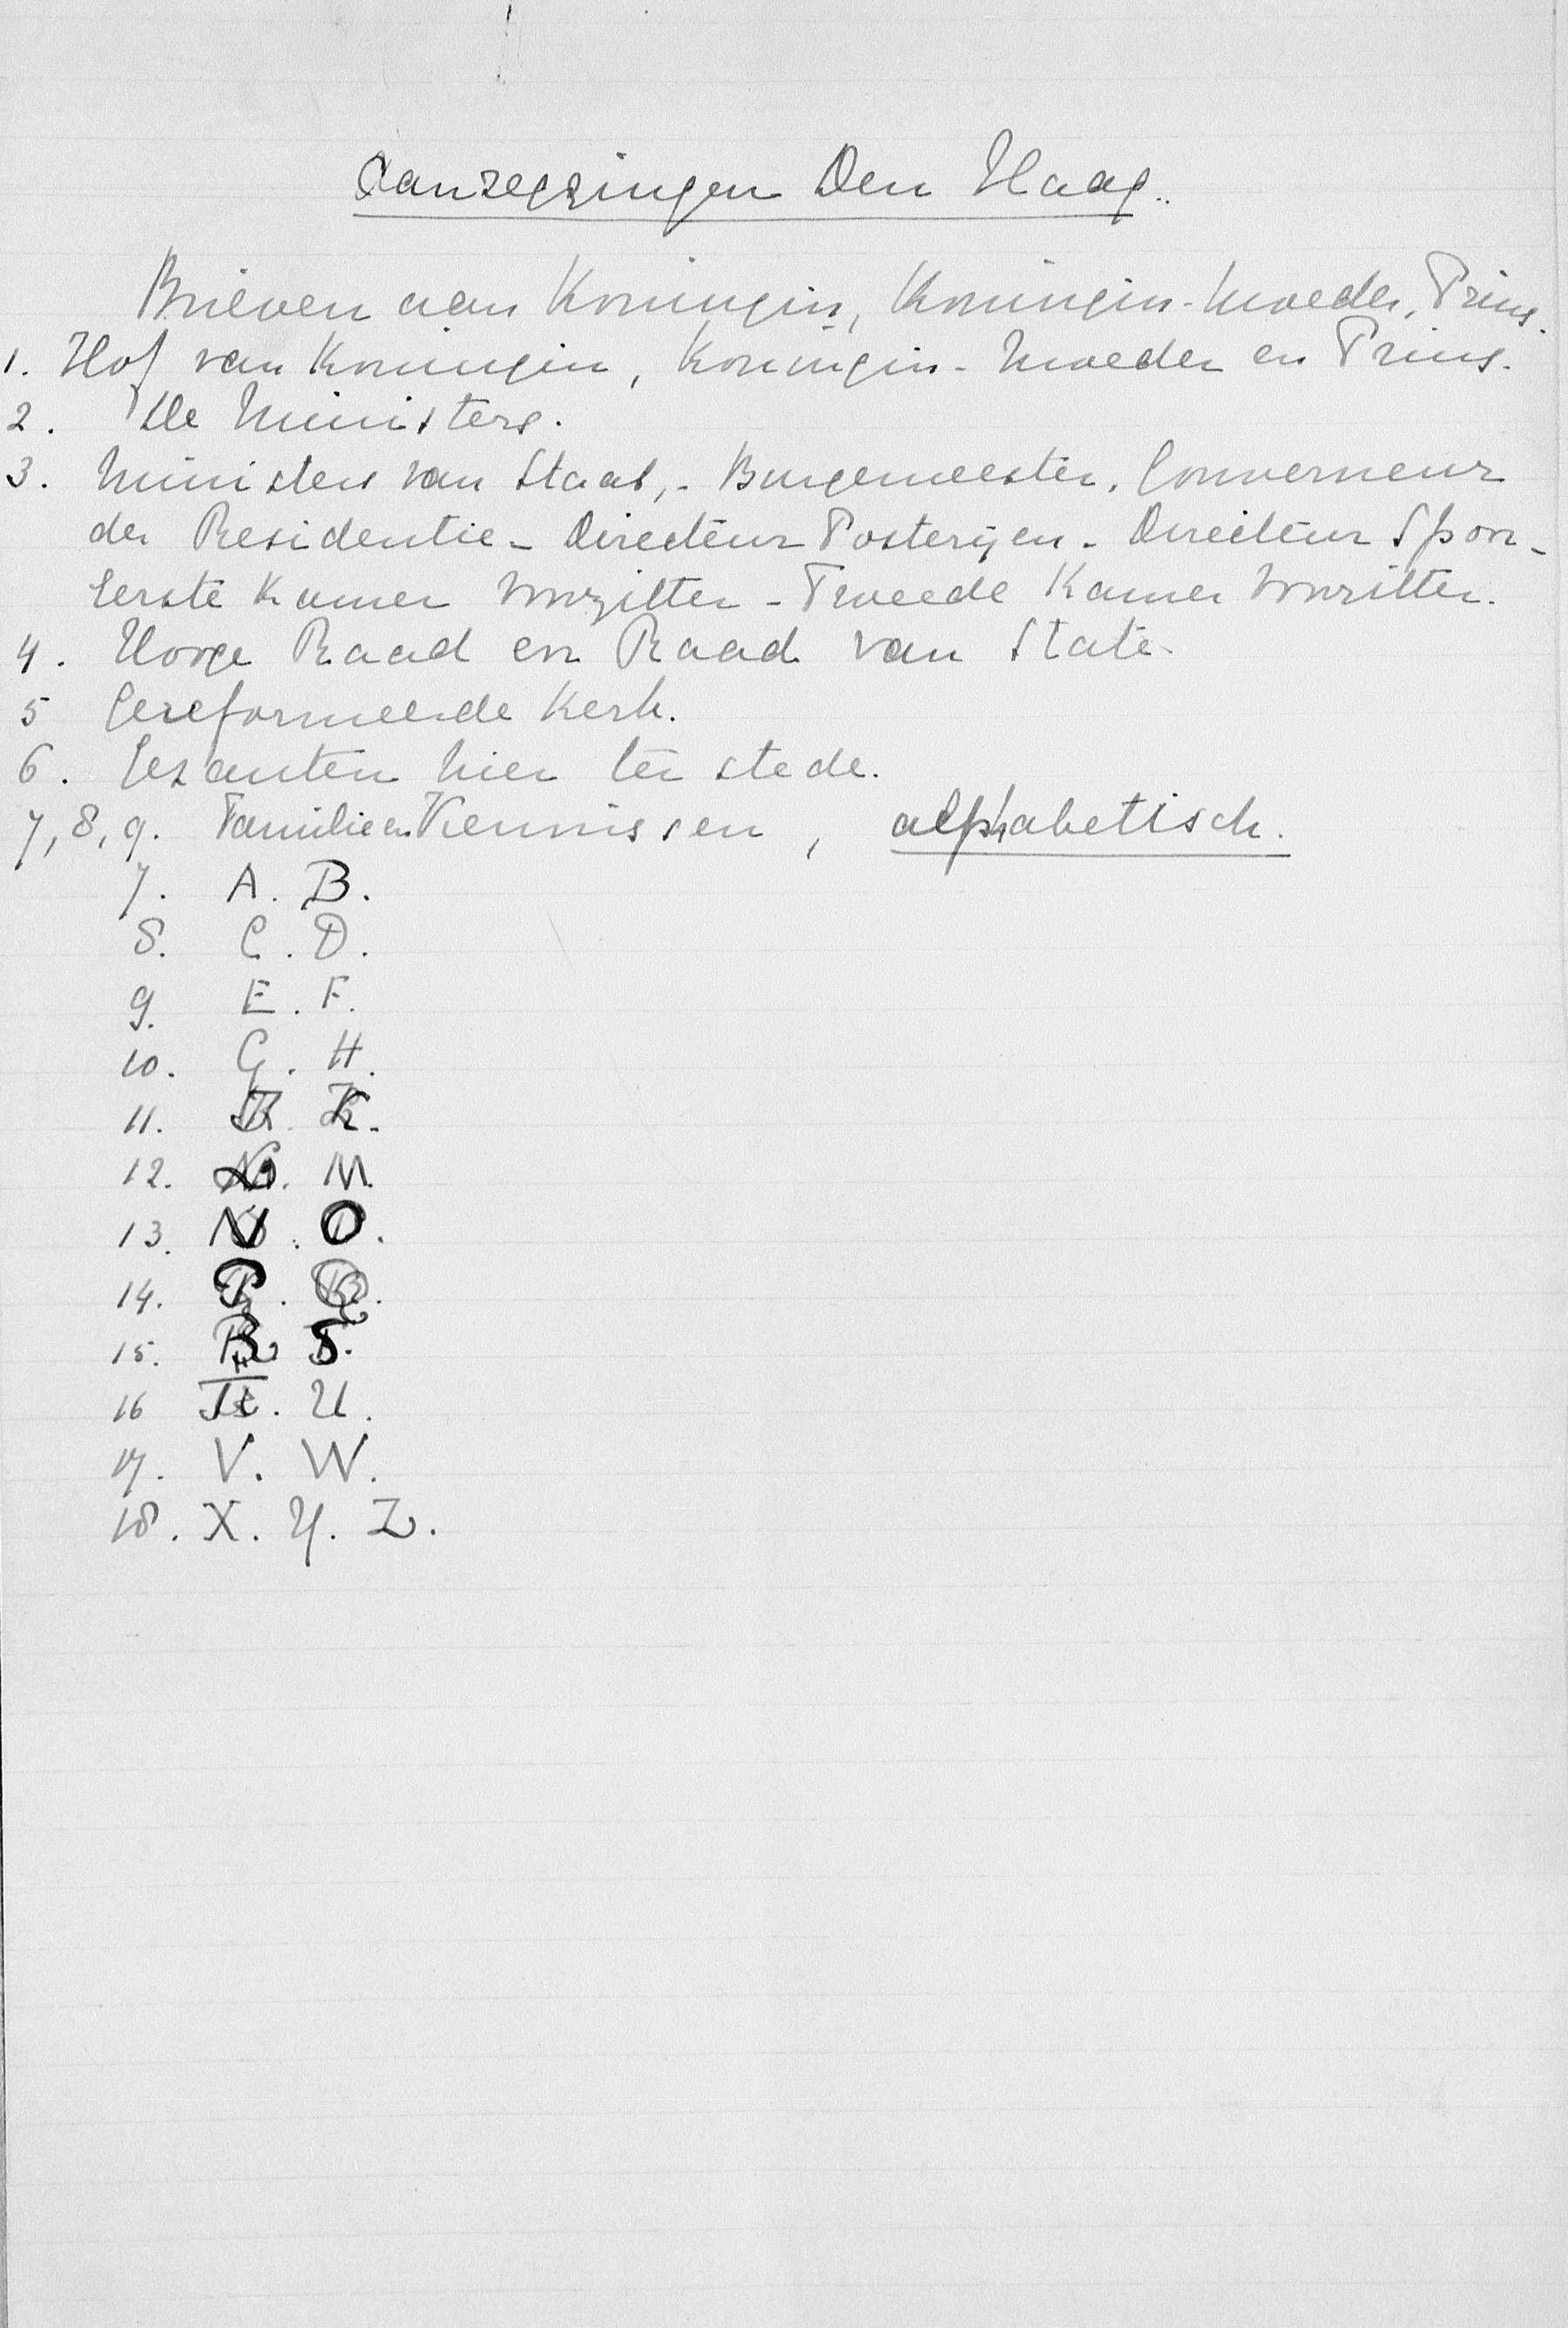 Aanzeggingen Den Haag..
Brieven aan Koningin, Koningin-Moeder, Prins.
1. Hof van Koningin, Koningin-Moeder en Prins.
2. De Ministers.
3. Ministers van Staat,- Burgemeester. Gouverneur
der Residentie - Directeur Posterijen - Directeur Spoor-
Eerste Kamer Voorzitter - Tweede Kamer Voorzitter.
4. Hooge Raad en Raad van State.
5 Gereformeerde Kerk.
6. Gezanten hier ter stede.
7, 8, 9. Familie en Kennissen, alphabetisch.
7. A. B.
8. C. D.
9. E. F.
10. G. H.
11. K.
12. M.
13. N. O.
14. P. Q.
15. R. S.
16 T. U.
17. V. W.
18. X. Y. Z.